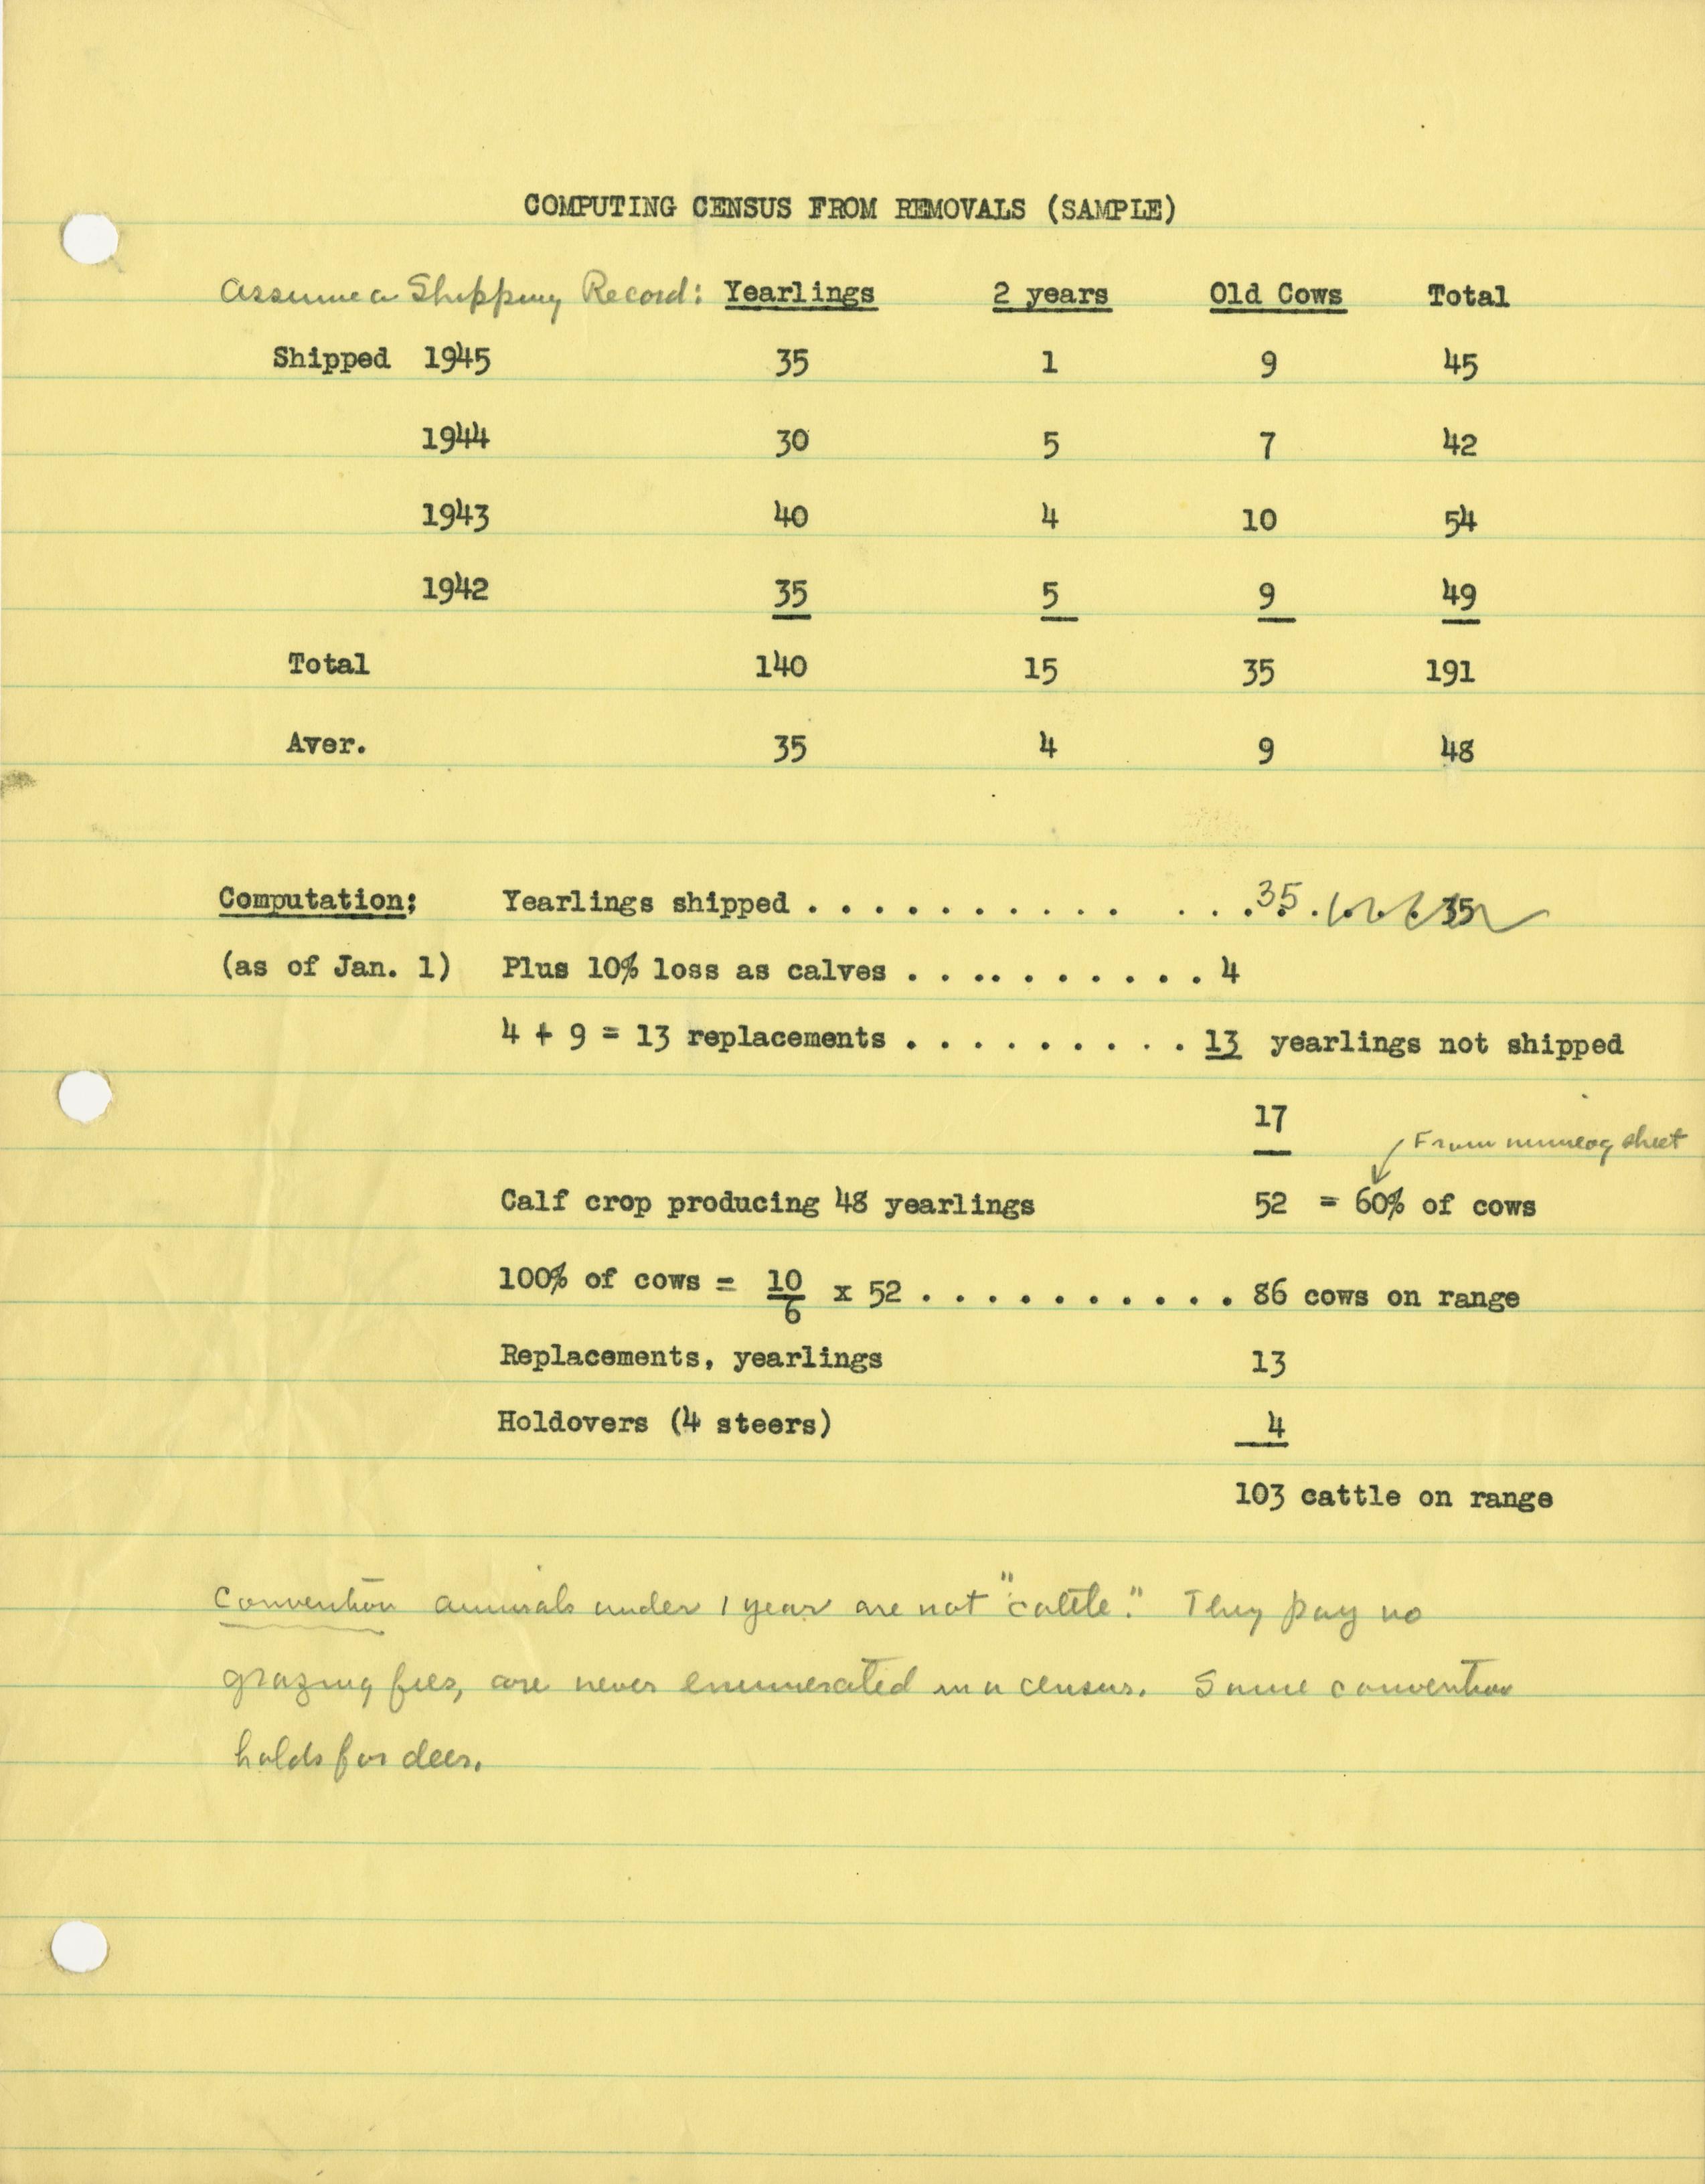 COMPUTING CENSUS FROM REMOVALS (SAMPLE)
Assume a Shipping Record: Yearlings 2 years Old Cows Total
Shipped 1945 35 1 9 45
1944 30 5 7 42
1943 40 4 10 54
1942 35 5 9 49
Total 140 15 35 191
Aver. 35 4 9 48
Computation: Yearlings shipped . . . . . . . . . . . . . . 35 . . . . 35
(as of Jan. 1) Plus 10% loss as calves . . . . . . . . . . 4
4 + 9 = 13 replacements . . . . . . . . . 13 yearlings not shipped
17
From mimeog sheet
Calf crop producing 48 yearlings 52 = 60% of cows
100% of cows = 10/6 x 52 . . . . . . . . . . 86 cows on range
Replacements, yearlings 13
Holdovers (4 steers) 4
103 cattle on range
Convention animals under 1 year are not "cattle." They pay no
grazing fees, are never enumerated in a census. Same convention
holds for deer.